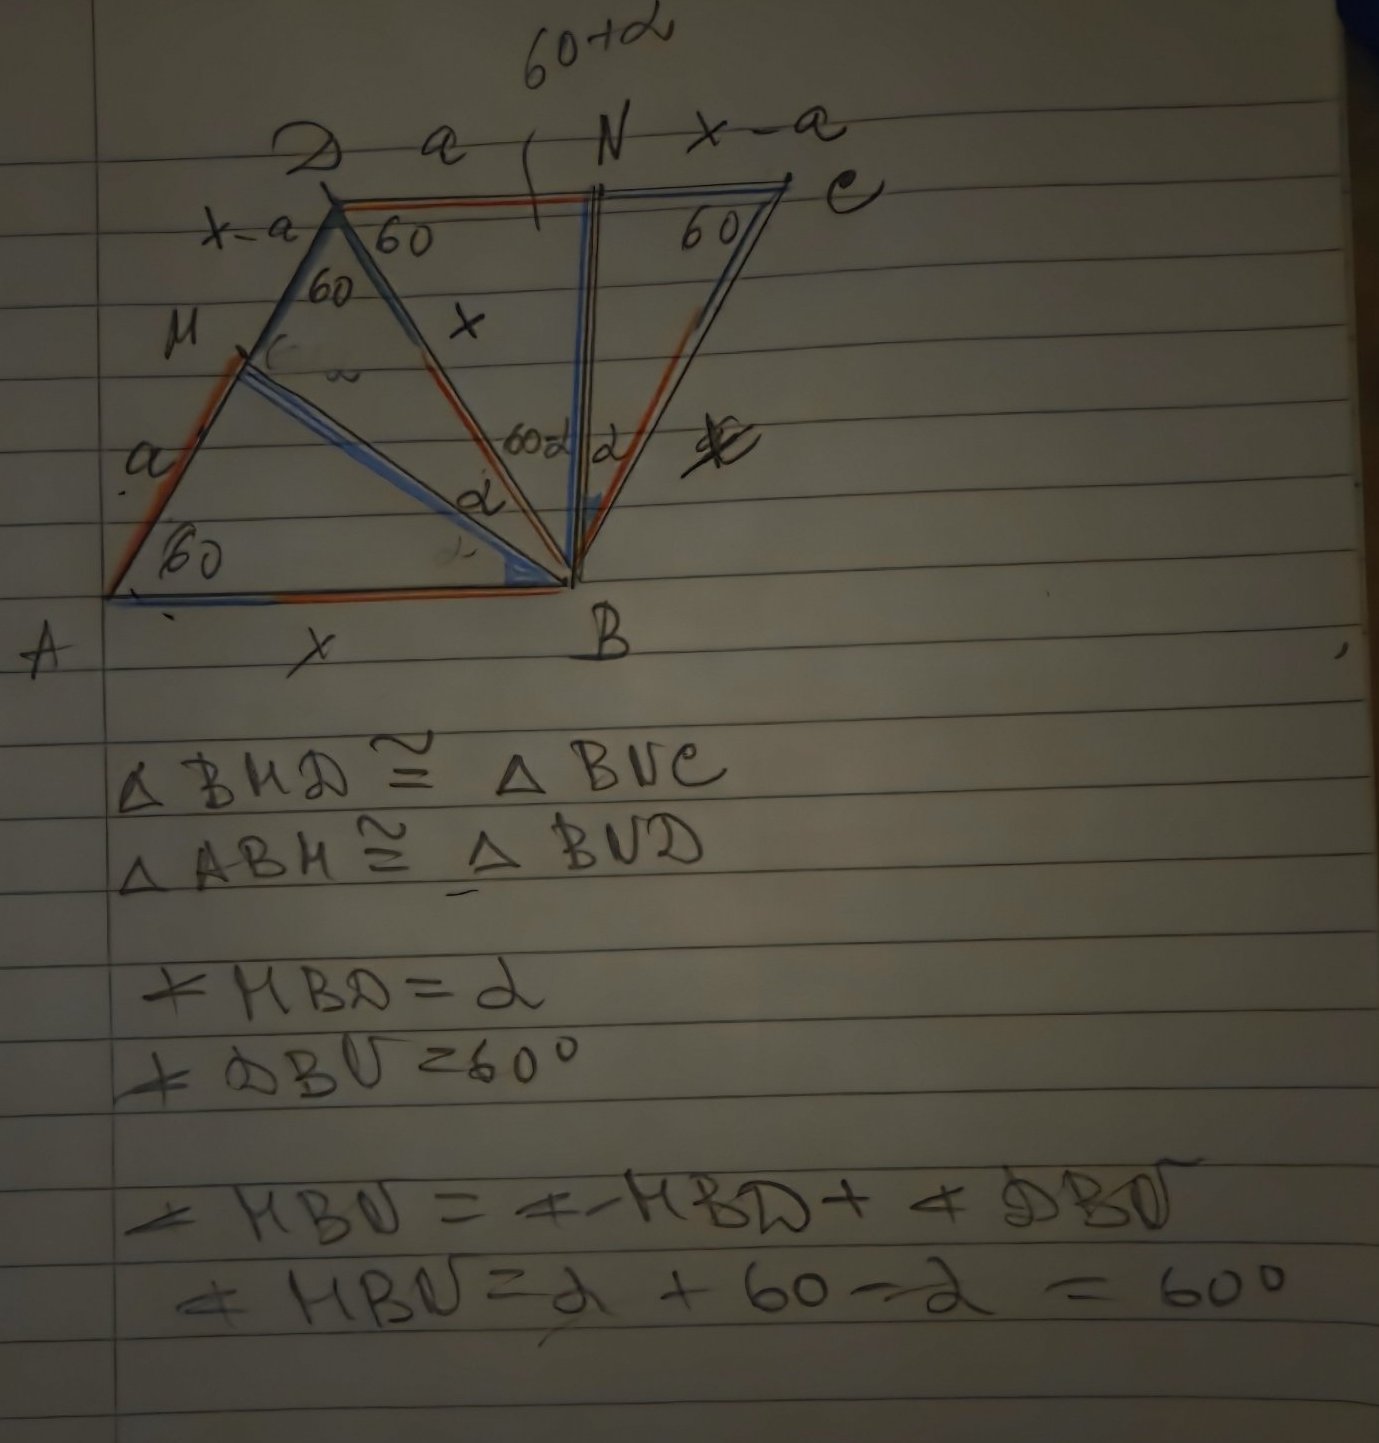 60+α
D a N x-a C
x-a 60 60
60
M x
a 60-α α
α
60
A x B
△ BMD ≅ △ BNC
△ ABM ≅ △ BND
∢ MBD = α
∢ DBN = 60°
∢ MBN = ∢ MBD + ∢ DBN
∢ MBN = α + 60 - α = 60°